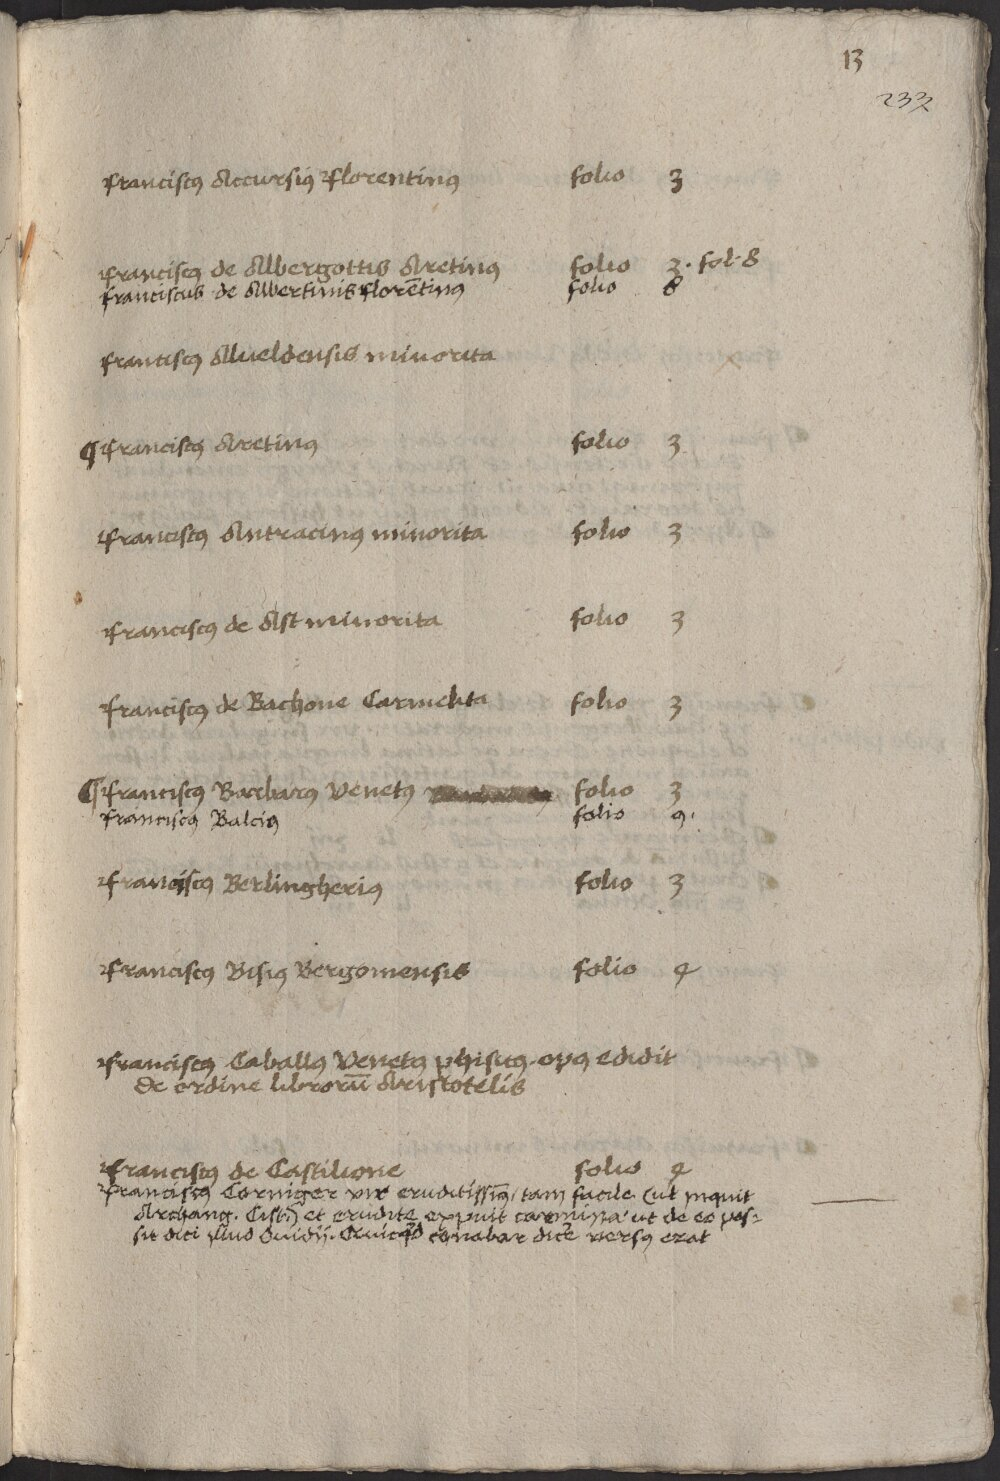 13
233
Franciscꝰ Accursiꝰ Florentinꝰ folio 3
Franciscꝰ de Albergottis Aretinꝰ folio 3. fol. 8
franciscus de Albertinis florētinꝰ folio 8
Franciscꝰ Alueldensis minorita
¶ Franciscꝰ Aretinꝰ folio 3
Franciscꝰ Antracinꝰ minorita folio 3
Franciscꝰ de Ast minorita folio 3
Franciscꝰ de Bachone Carmelita folio 3
¶ Franciscꝰ Barbarꝰ Venetꝰ folio 3
Franciscꝰ Balciꝰ folio 9.
Franciscꝰ Berlingheriꝰ folio 3
Franciscꝰ Bisiꝰ Bergomensis folio 4
Franciscꝰ Caballꝰ Venetꝰ phisicꝰ. opꝰ edidit
de ordine librorū Aristotelis
Franciscꝰ de Castilione folio 4
Franciscꝰ Corniger vir eruditissiꝰ, tam facile (ut inquit
Archang. et erudite expuit carmina ut de eo pos-
sit dici illud Ouidij. Quicqd conabar dicē versꝰ erat